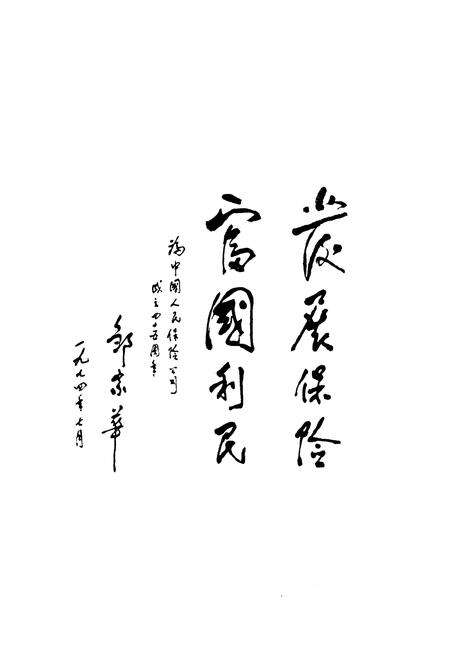 發展保险
富國利民
为中國人民保险公司
成立四十五周年
邹家华
一九九四年七月